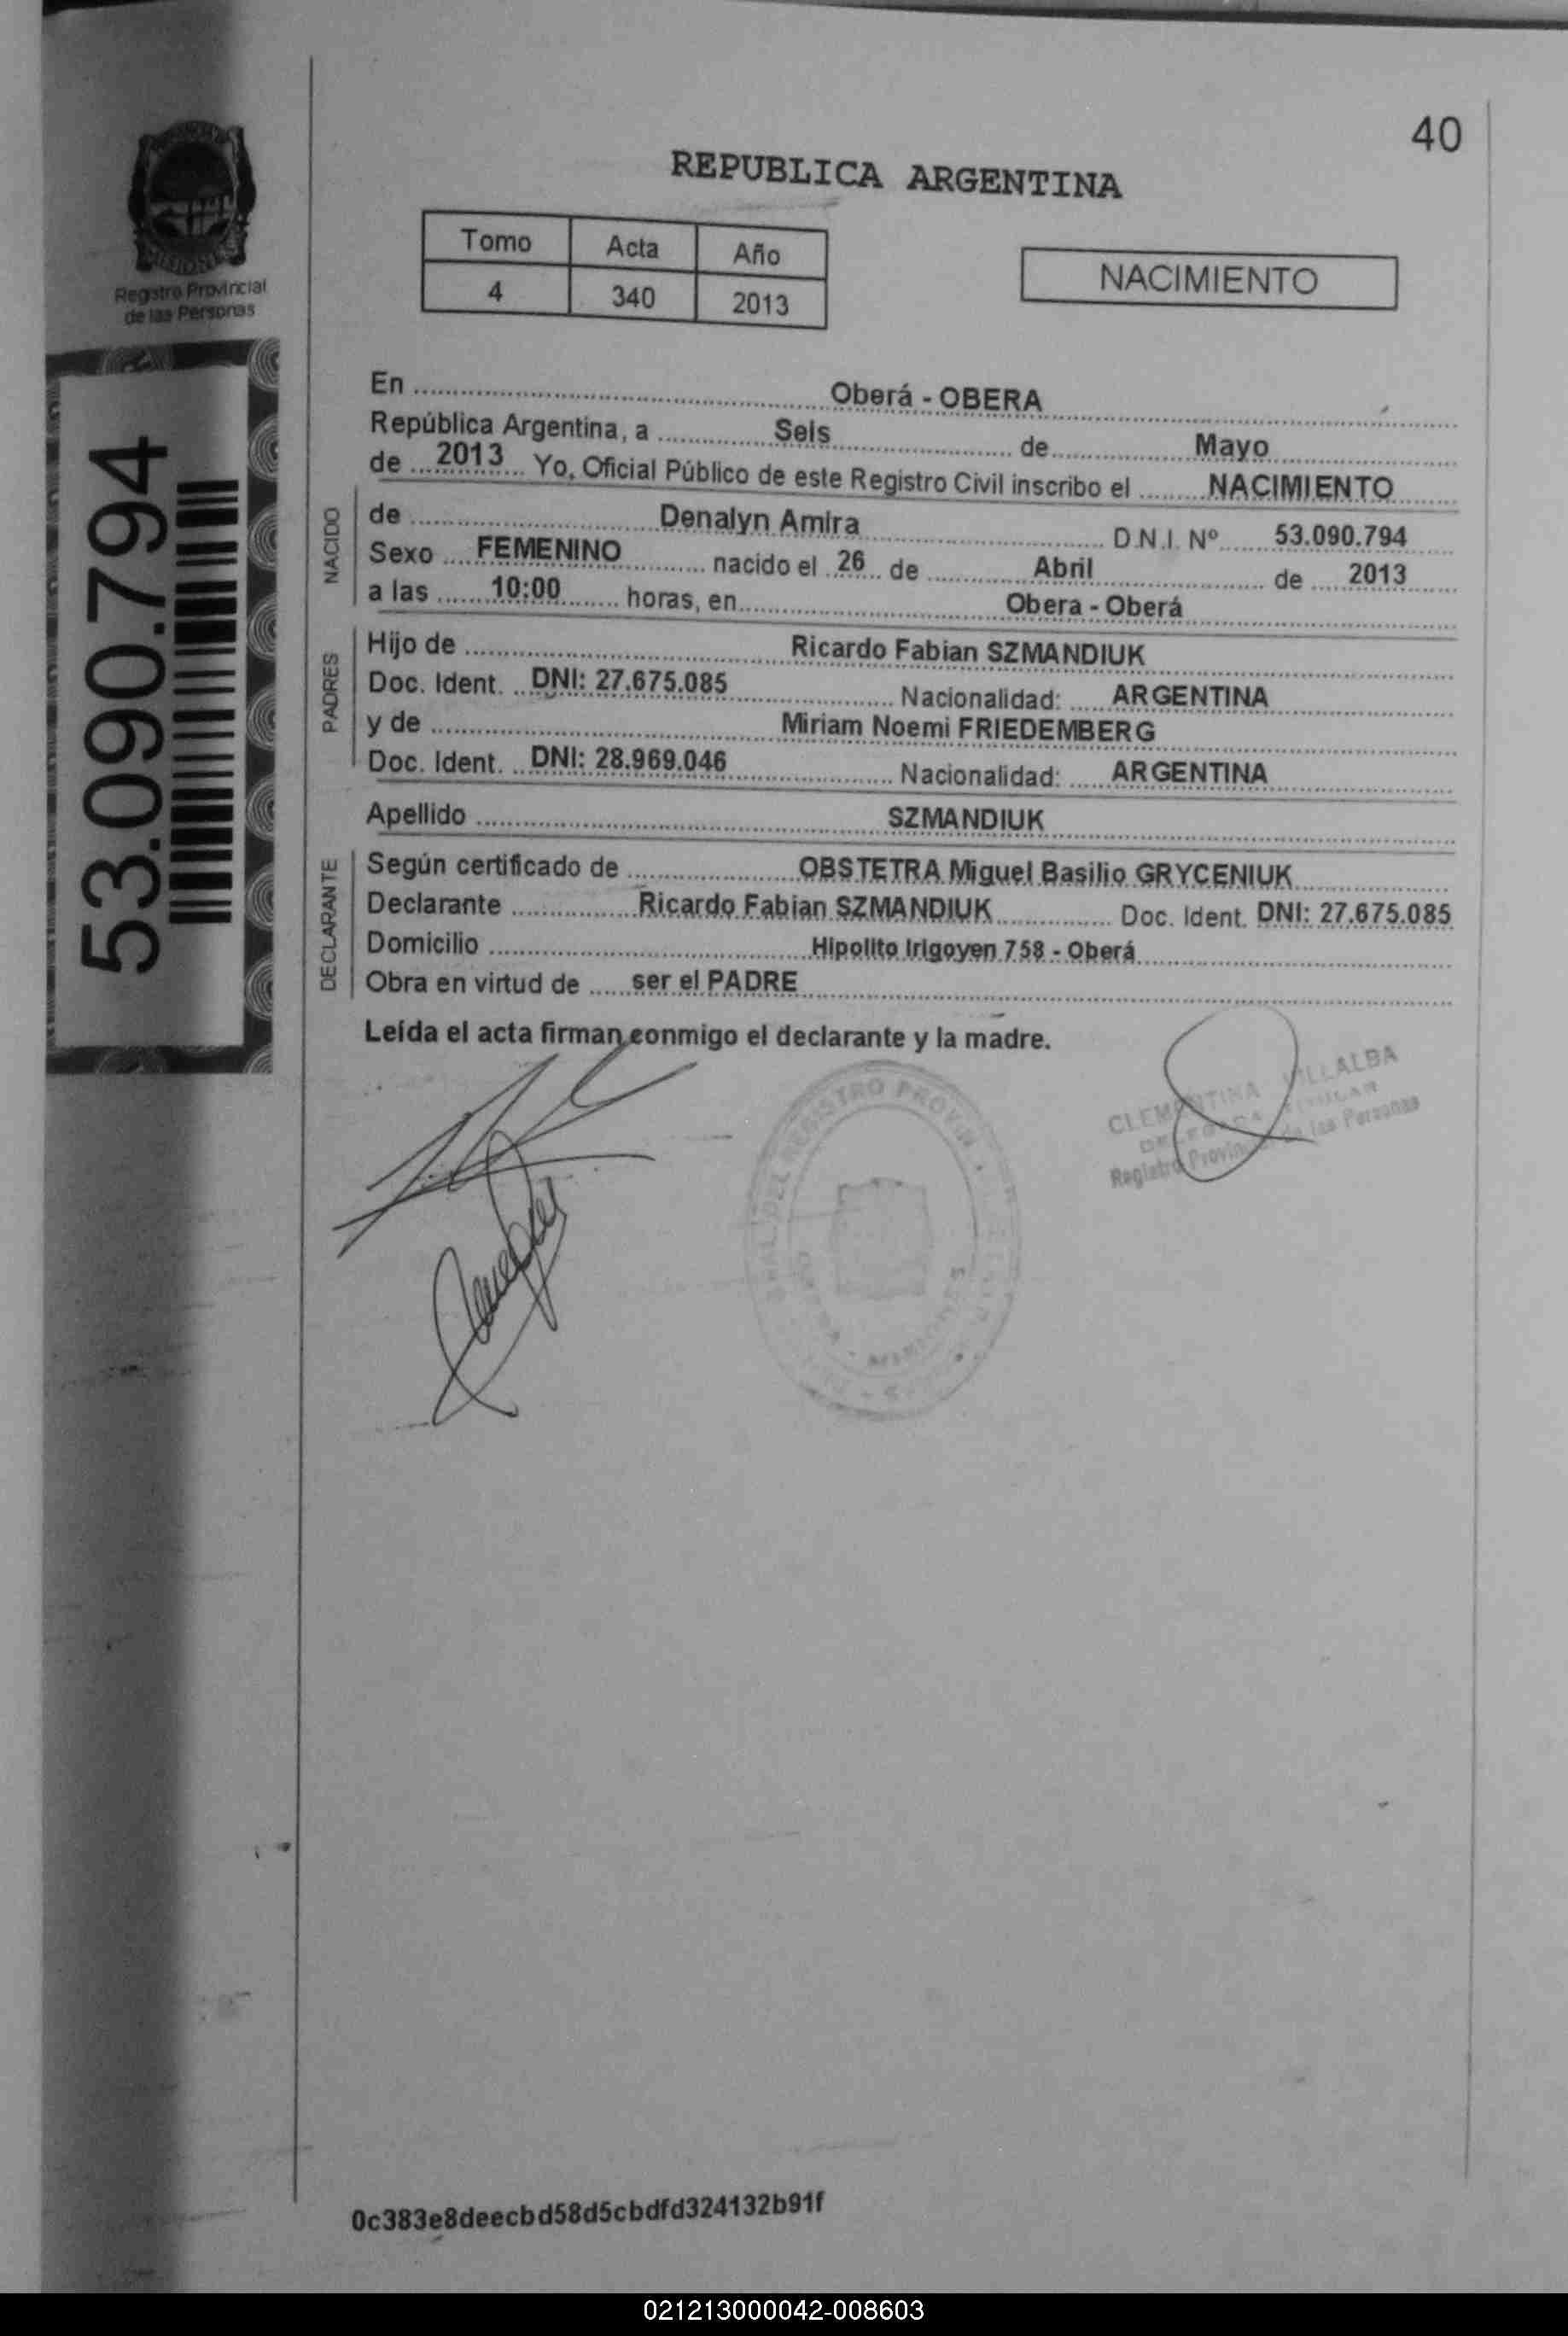 40
REPUBLICA ARGENTINA
Tomo Acta Año
4 340 2013
NACIMIENTO
MISIONES
Registro Provincial
de las Personas
53.090.794
En Oberá - OBERA
República Argentina, a Seis de Mayo
de 2013 Yo, Oficial Público de este Registro Civil inscribo el NACIMIENTO
NACIDO
de Denalyn Amira D.N.I. Nº 53.090.794
Sexo FEMENINO nacido el 26 de Abril de 2013
a las 10:00 horas, en Obera - Oberá
PADRES
Hijo de Ricardo Fabian SZMANDIUK
Doc. Ident. DNI: 27.675.085 Nacionalidad: ARGENTINA
y de Miriam Noemi FRIEDEMBERG
Doc. Ident. DNI: 28.969.046 Nacionalidad: ARGENTINA
Apellido SZMANDIUK
DECLARANTE
Según certificado de OBSTETRA Miguel Basilio GRYCENIUK
Declarante Ricardo Fabian SZMANDIUK Doc. Ident. DNI: 27.675.085
Domicilio Hipolito Irigoyen 758 - Oberá
Obra en virtud de ser el PADRE
Leída el acta firman conmigo el declarante y la madre.
CLEMENTINA VILLALBA
Registro Provincial de las Personas
0c383e8deecbd58d5cbdfd324132b91f
021213000042-008603